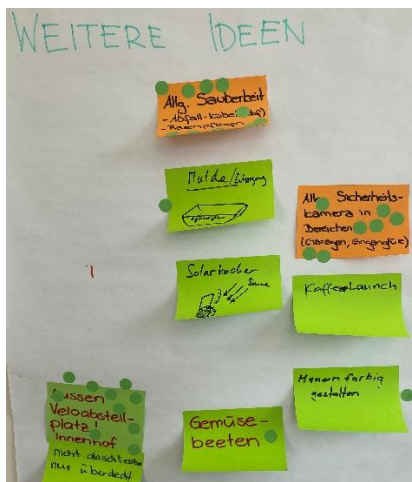 WEITERE IDEEN
Allg. Sauberkeit
- Abfall-Kübel
Mulde/
Allg. Sicherheits-
kamera in
Bereichen
(Garagen, Eingangtüre)
Solarkocher
Sonne
Kaffee Launch
Mauern farbig
gestalten
Aussen
Veloabstell-
platz!
Innenhof
nicht abschliessbar
nur überdeckt
Gemüse-
beeten